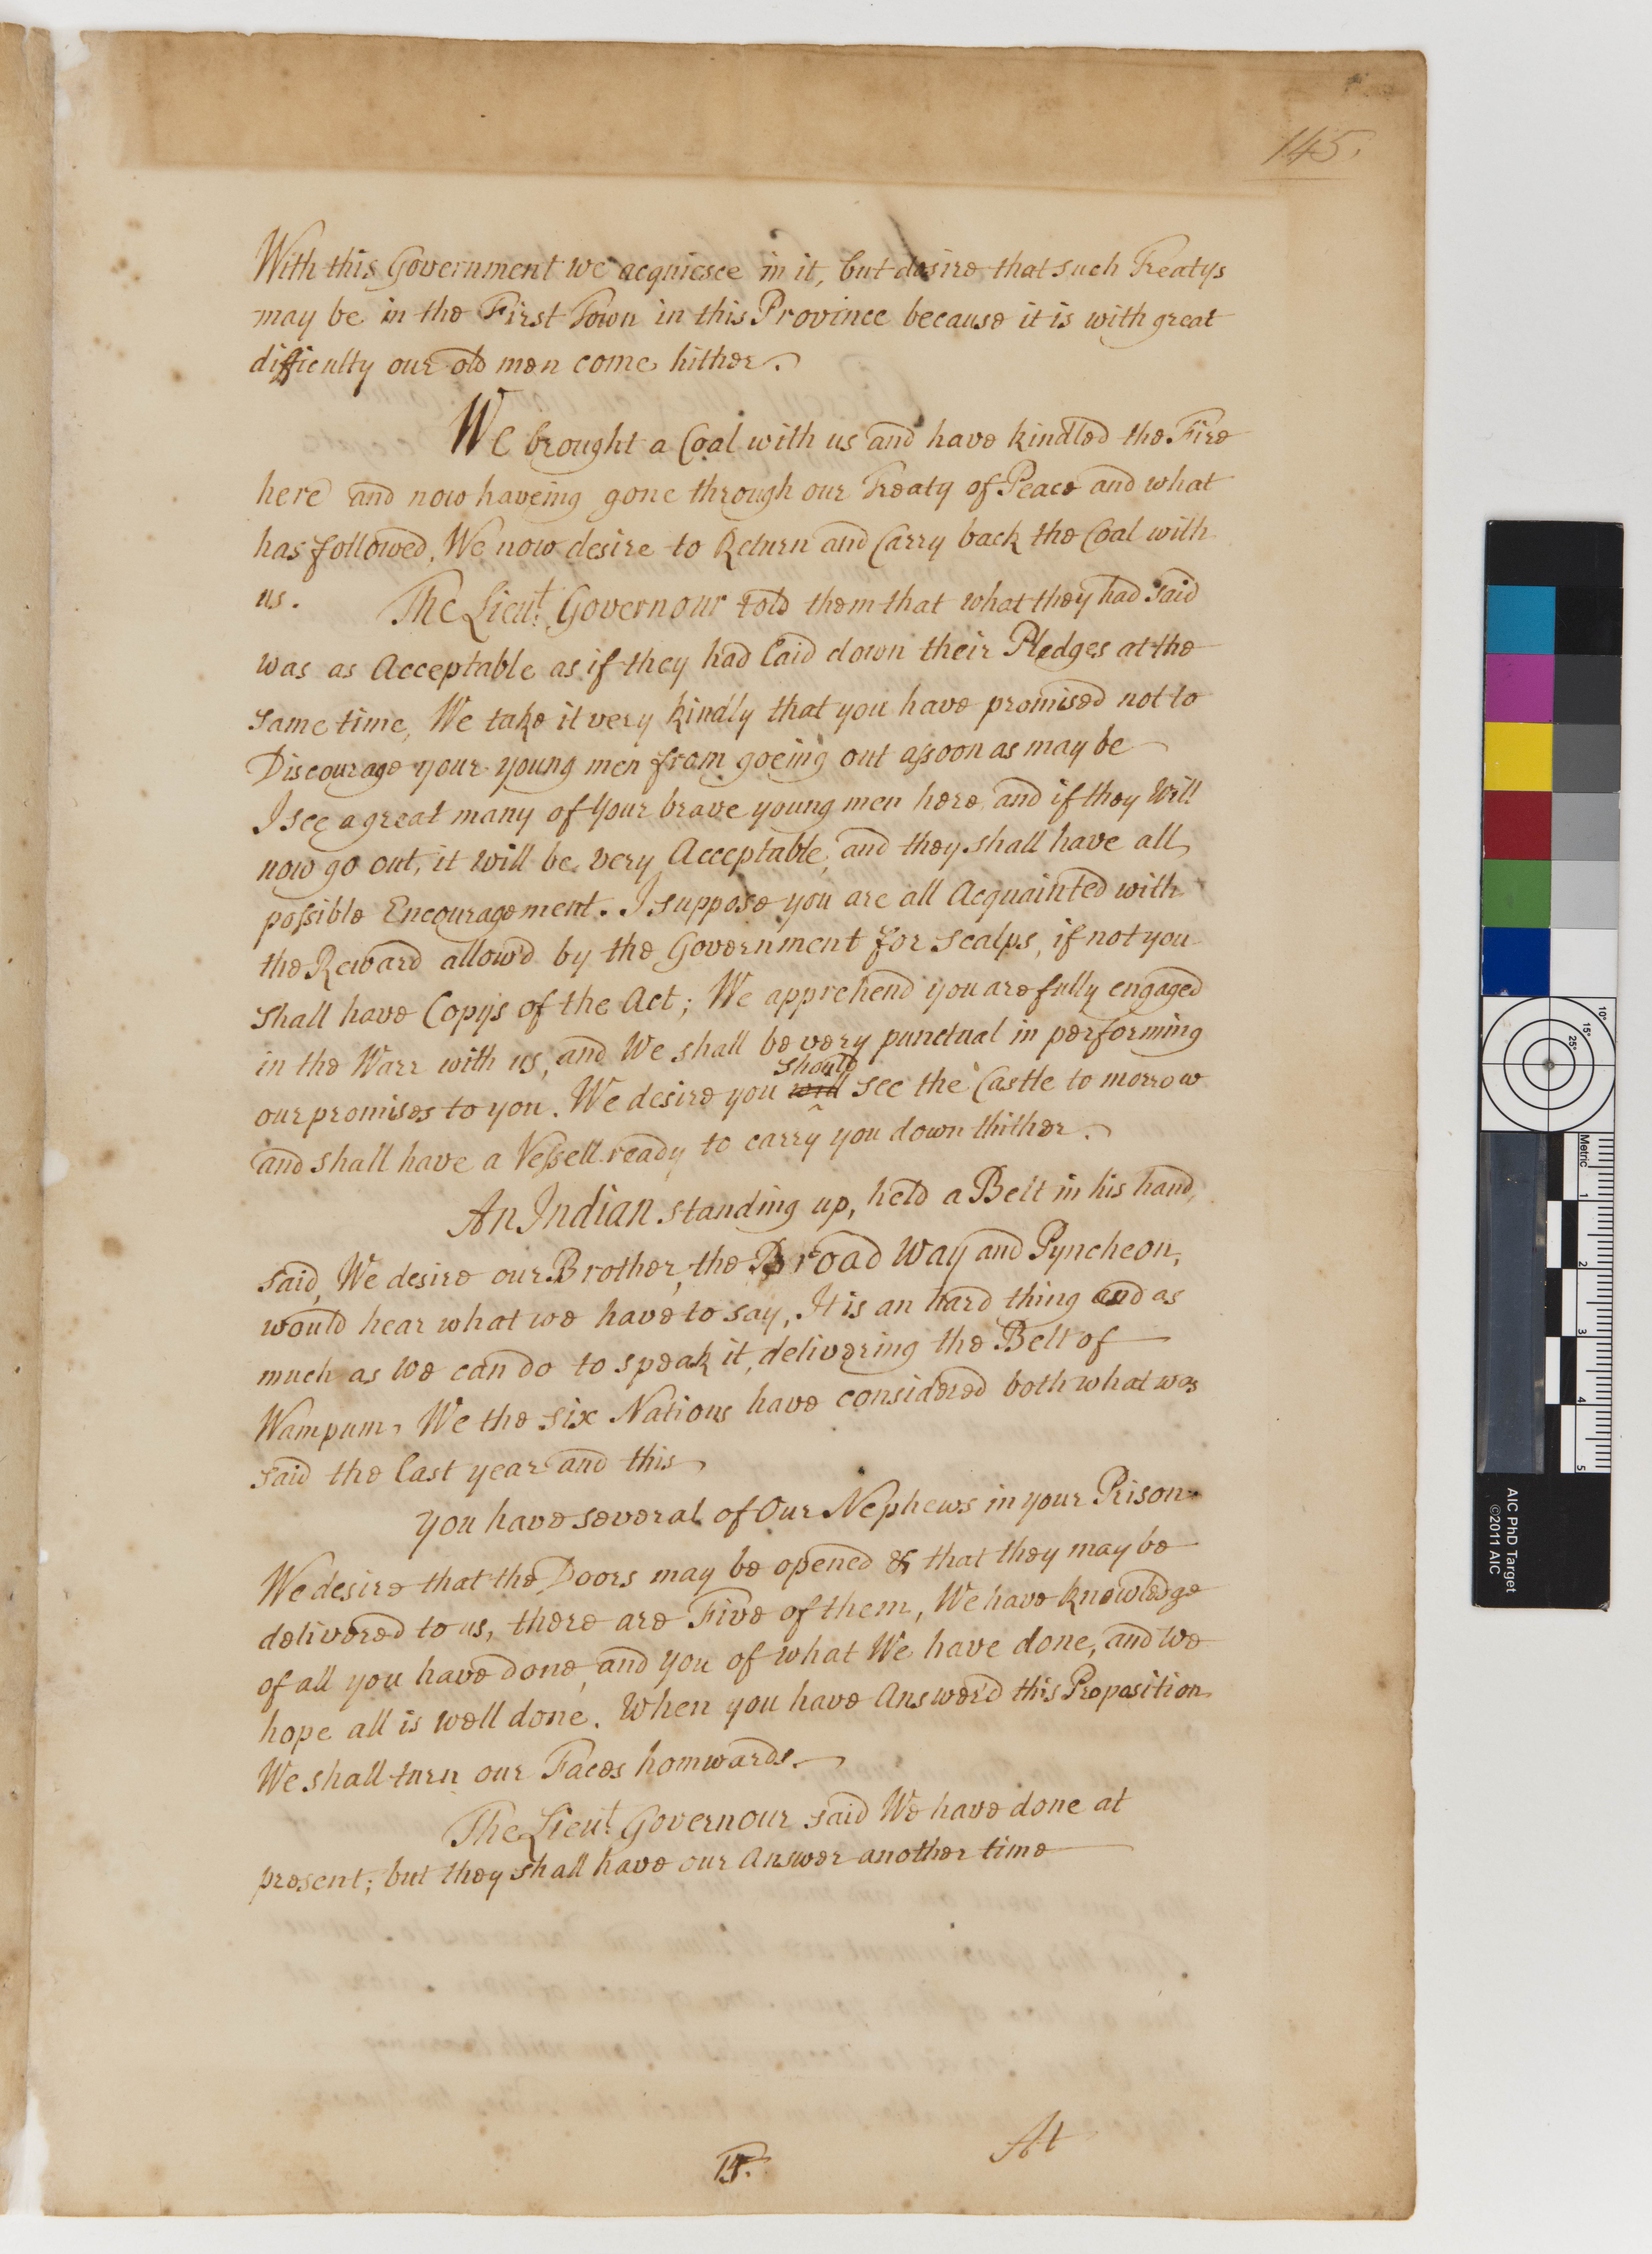 145.
With this Government we acquiesce in it, but desire that such Treatys
may be in the First Town in this Province because it is with great
difficulty our old men come hither.
We brought a Coal with us and have kindled the Fire
here and now haveing gone through our Treaty of Peace and what
has followed, We now desire to Return and Carry back the Coal with
us. The Lieut. Governour told them that what they had said
was as Acceptable as if they had laid down their Pledges at the
same time, We take it very kindly that you have promised not to
Discourage your young men from goeing out assoon as may be
I see a great many of your brave young men here and if they Will
now go out, it will be very Acceptable, and they shall have all
possible Encouragement. I suppose you are all Acquainted with
the Reward allow'd by the Government for Scalps, if not you
shall have Copys of the Act; We apprehend you are fully engaged
in the Warr with us, and We shall be very punctual in performing
our promises to you. We desire you will should see the Castle to morrow
and shall have a Vessell ready to carry you down thither.
An Indian standing up, held a Belt in his hand,
said, We desire our Brother, the Broad Way and Pyncheon,
would hear what we have to say, It is an hard thing and as
much as we can do to speak it, delivering the Belt of
Wampum, We the six Nations have considered both what was
said the last year and this
You have several of Our Nephews in your Prison
We desire that the Doors may be opened & that they may be
delivered to us, there are Five of them, We have knowledge
of all you have done, and you of what We have done, and we
hope all is well done. When you have Answer'd this Proposition
We shall turn our Faces homwards.
The Lieut. Governour said We have done at
present; but they shall have our Answer another time
At
AIC PhD Target
©2011 AIC
Metric
1
2
3
4
5
10°
15°
25°